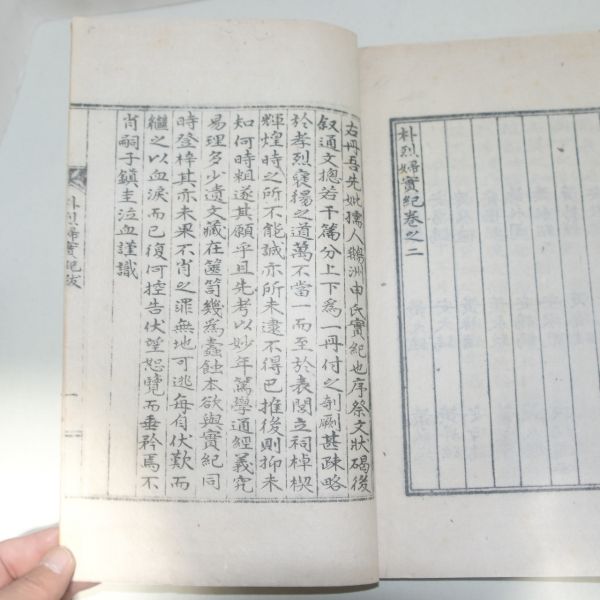 朴烈婦實紀卷之二
右丹吾先妣孺人鵝洲申氏實紀也序祭文狀碣後
叙通文摠若干篇分上下爲一丹付之剞劂甚疎略
於孝烈襃揚之道萬不當一而至於表閭立祠棹楔
輝煌時之所不能誠亦所未逮不得已推後則抑未
知何時頼遂其願乎且先考以妙年篤學通經義究
易理多少遺文藏在篋笥幾爲蠹蝕本欲與實紀同
時登梓其亦未果不肖之罪無地可逃每自伏歎而
繼之以血淚而已復何控告伏望恕覽而垂矜焉不
肖嗣子鎭圭泣血謹識
朴烈婦實紀跋
一